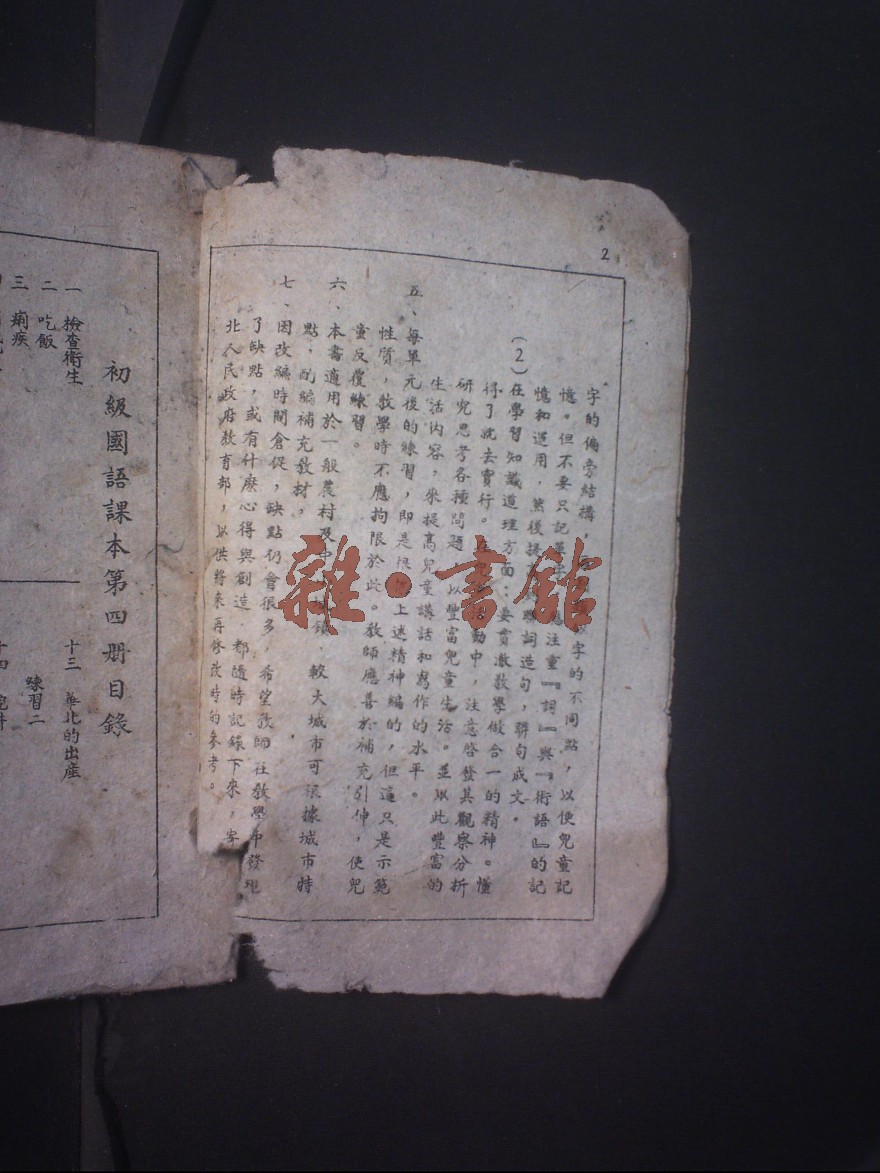 2
字的偏旁結構，字的不同點，以便兒童記
憶。但不要只記單注重『詞』與『術語』的記
憶和運用，然後提聯詞造句，聯句成文。
（2）在學習知識道理方面：要貫澈教學做合一的精神。懂
得了就去實行。在動中，注意啓發其觀察分析
研究思考各種問題以豐富兒童生活。並以此豐富的
生活內容，來提高兒童講話和寫作的水平。
五、每單元後的練習，即是根據上述精神編的，但這只是示範
性質，教學時不應拘限於此。教師應善於補充引伸，使兒
童反覆練習。
六、本書適用於一般農村及中鎮，較大城市可根據城市特
點，酌編補充教材。
七、因改編時間倉促，缺點仍會很多，希望教師在教學中發現
了缺點，或有什麽心得與創造都隨時記錄下來，寄
北人民政府教育部，以供將來再修改時的參考。
初級國語課本第四册目錄
一 檢查衛生
二 吃飯
三 痢疾
十三 華北的出產
練習二
十四
雜·書館